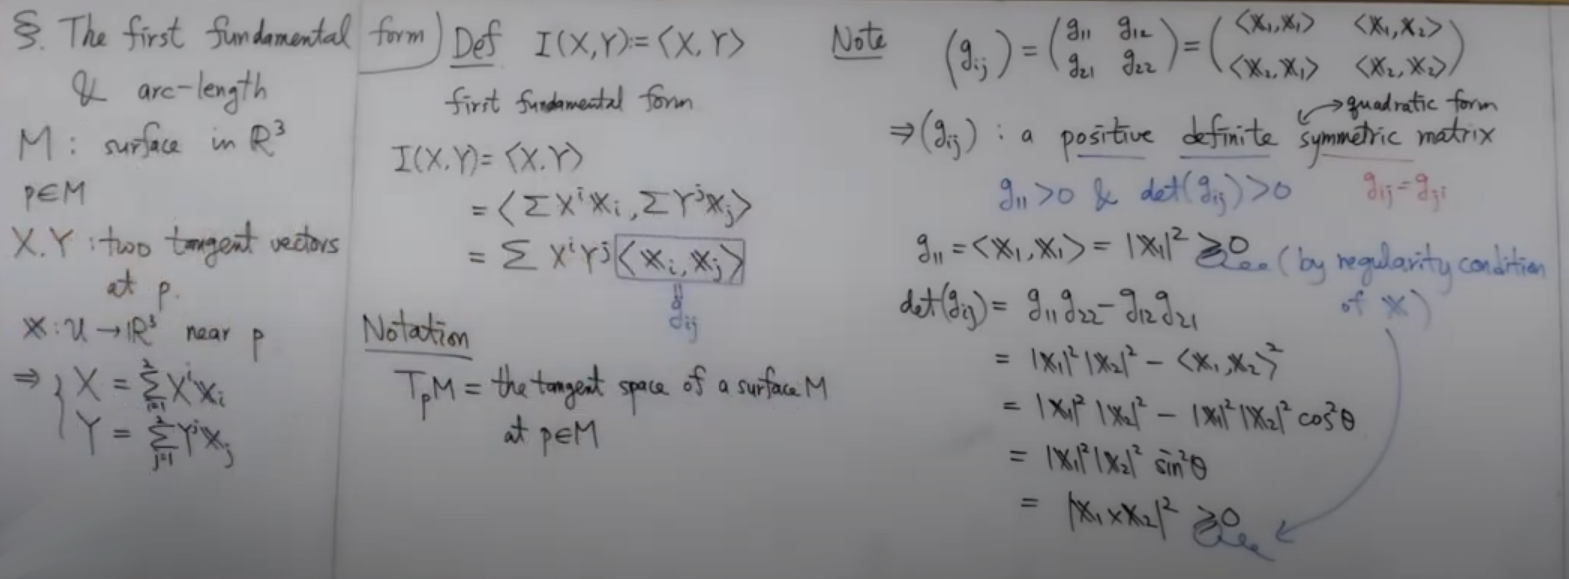 §. The first fundamental form
& arc-length
M : surface in ℝ³
p∈M
X.Y : two tangent vectors
at p.
𝕏 : U → ℝ³ near p
⇒ { X = Σ_{i=1}^{2} X^i 𝕏_i
Y = Σ_{j=1}^{2} Y^j 𝕏_j
Def I(X,Y):=<X,Y>
first fundamental form
I(X.Y)= <X.Y>
= <Σ X^i 𝕏_i, Σ Y^j 𝕏_j>
= Σ X^i Y^j <𝕏_i, 𝕏_j>
=
g_ij
Notation
T_pM = the tangent space of a surface M
at p∈M
Note (g_ij) = (g_11 g_12 g_21 g_22) = (<𝕏_1,𝕏_1> <𝕏_1,𝕏_2> <𝕏_2,𝕏_1> <𝕏_2,𝕏_2>)
→ quadratic form
⇒ (g_ij) : a positive definite symmetric matrix
g_11 >0 & det(g_ij) >0 g_ij = g_ji
g_11 = <𝕏_1,𝕏_1> = |𝕏_1|² ≥0 (by regularity condition
of 𝕏)
det(g_ij) = g_11 g_22 - g_12 g_21
= |𝕏_1|² |𝕏_2|² - <𝕏_1,𝕏_2>²
= |𝕏_1|² |𝕏_2|² - |𝕏_1|² |𝕏_2|² cos²θ
= |𝕏_1|² |𝕏_2|² sin²θ
= |𝕏_1×𝕏_2|² ≥0